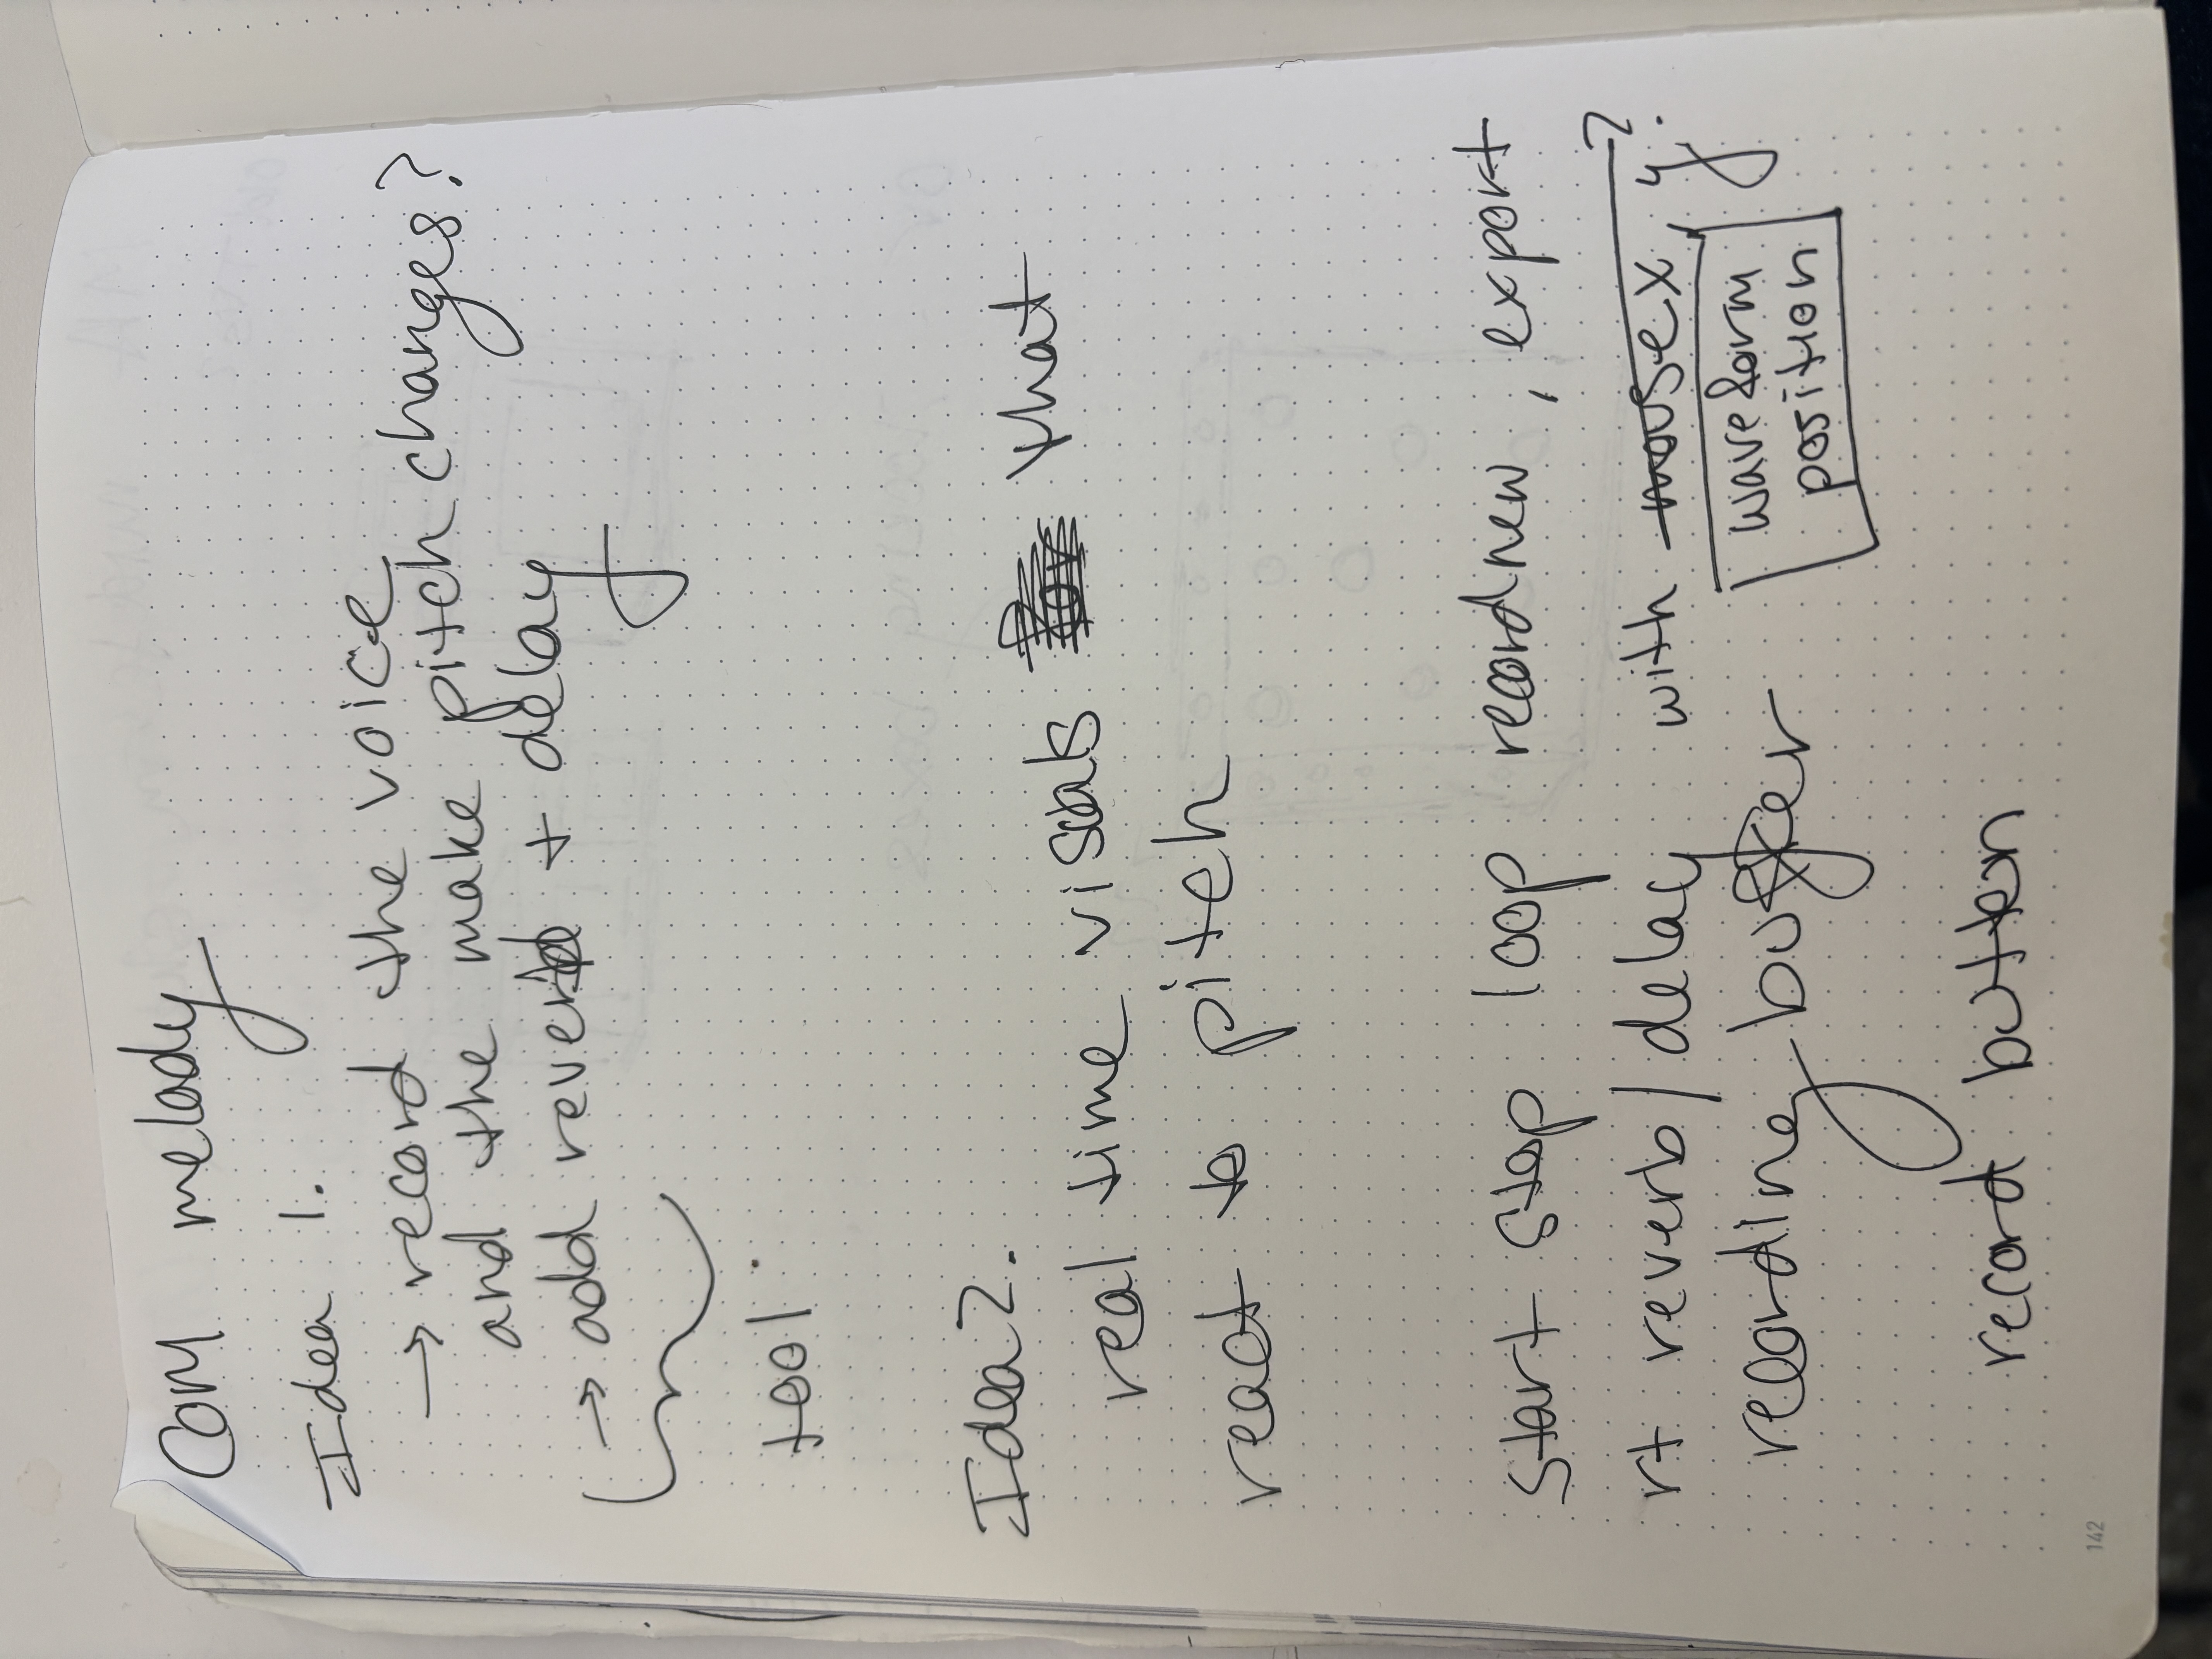 Com melody
Idea 1.
→ record the voice
and the make pitch changes?
→ add reverb + delay
tool.
Idea 2.
real time visals that
react to pitch
start stop loop record new, export
rt reverb/delay with mouse x, y?
recording buffer
waveform
position
record button
142